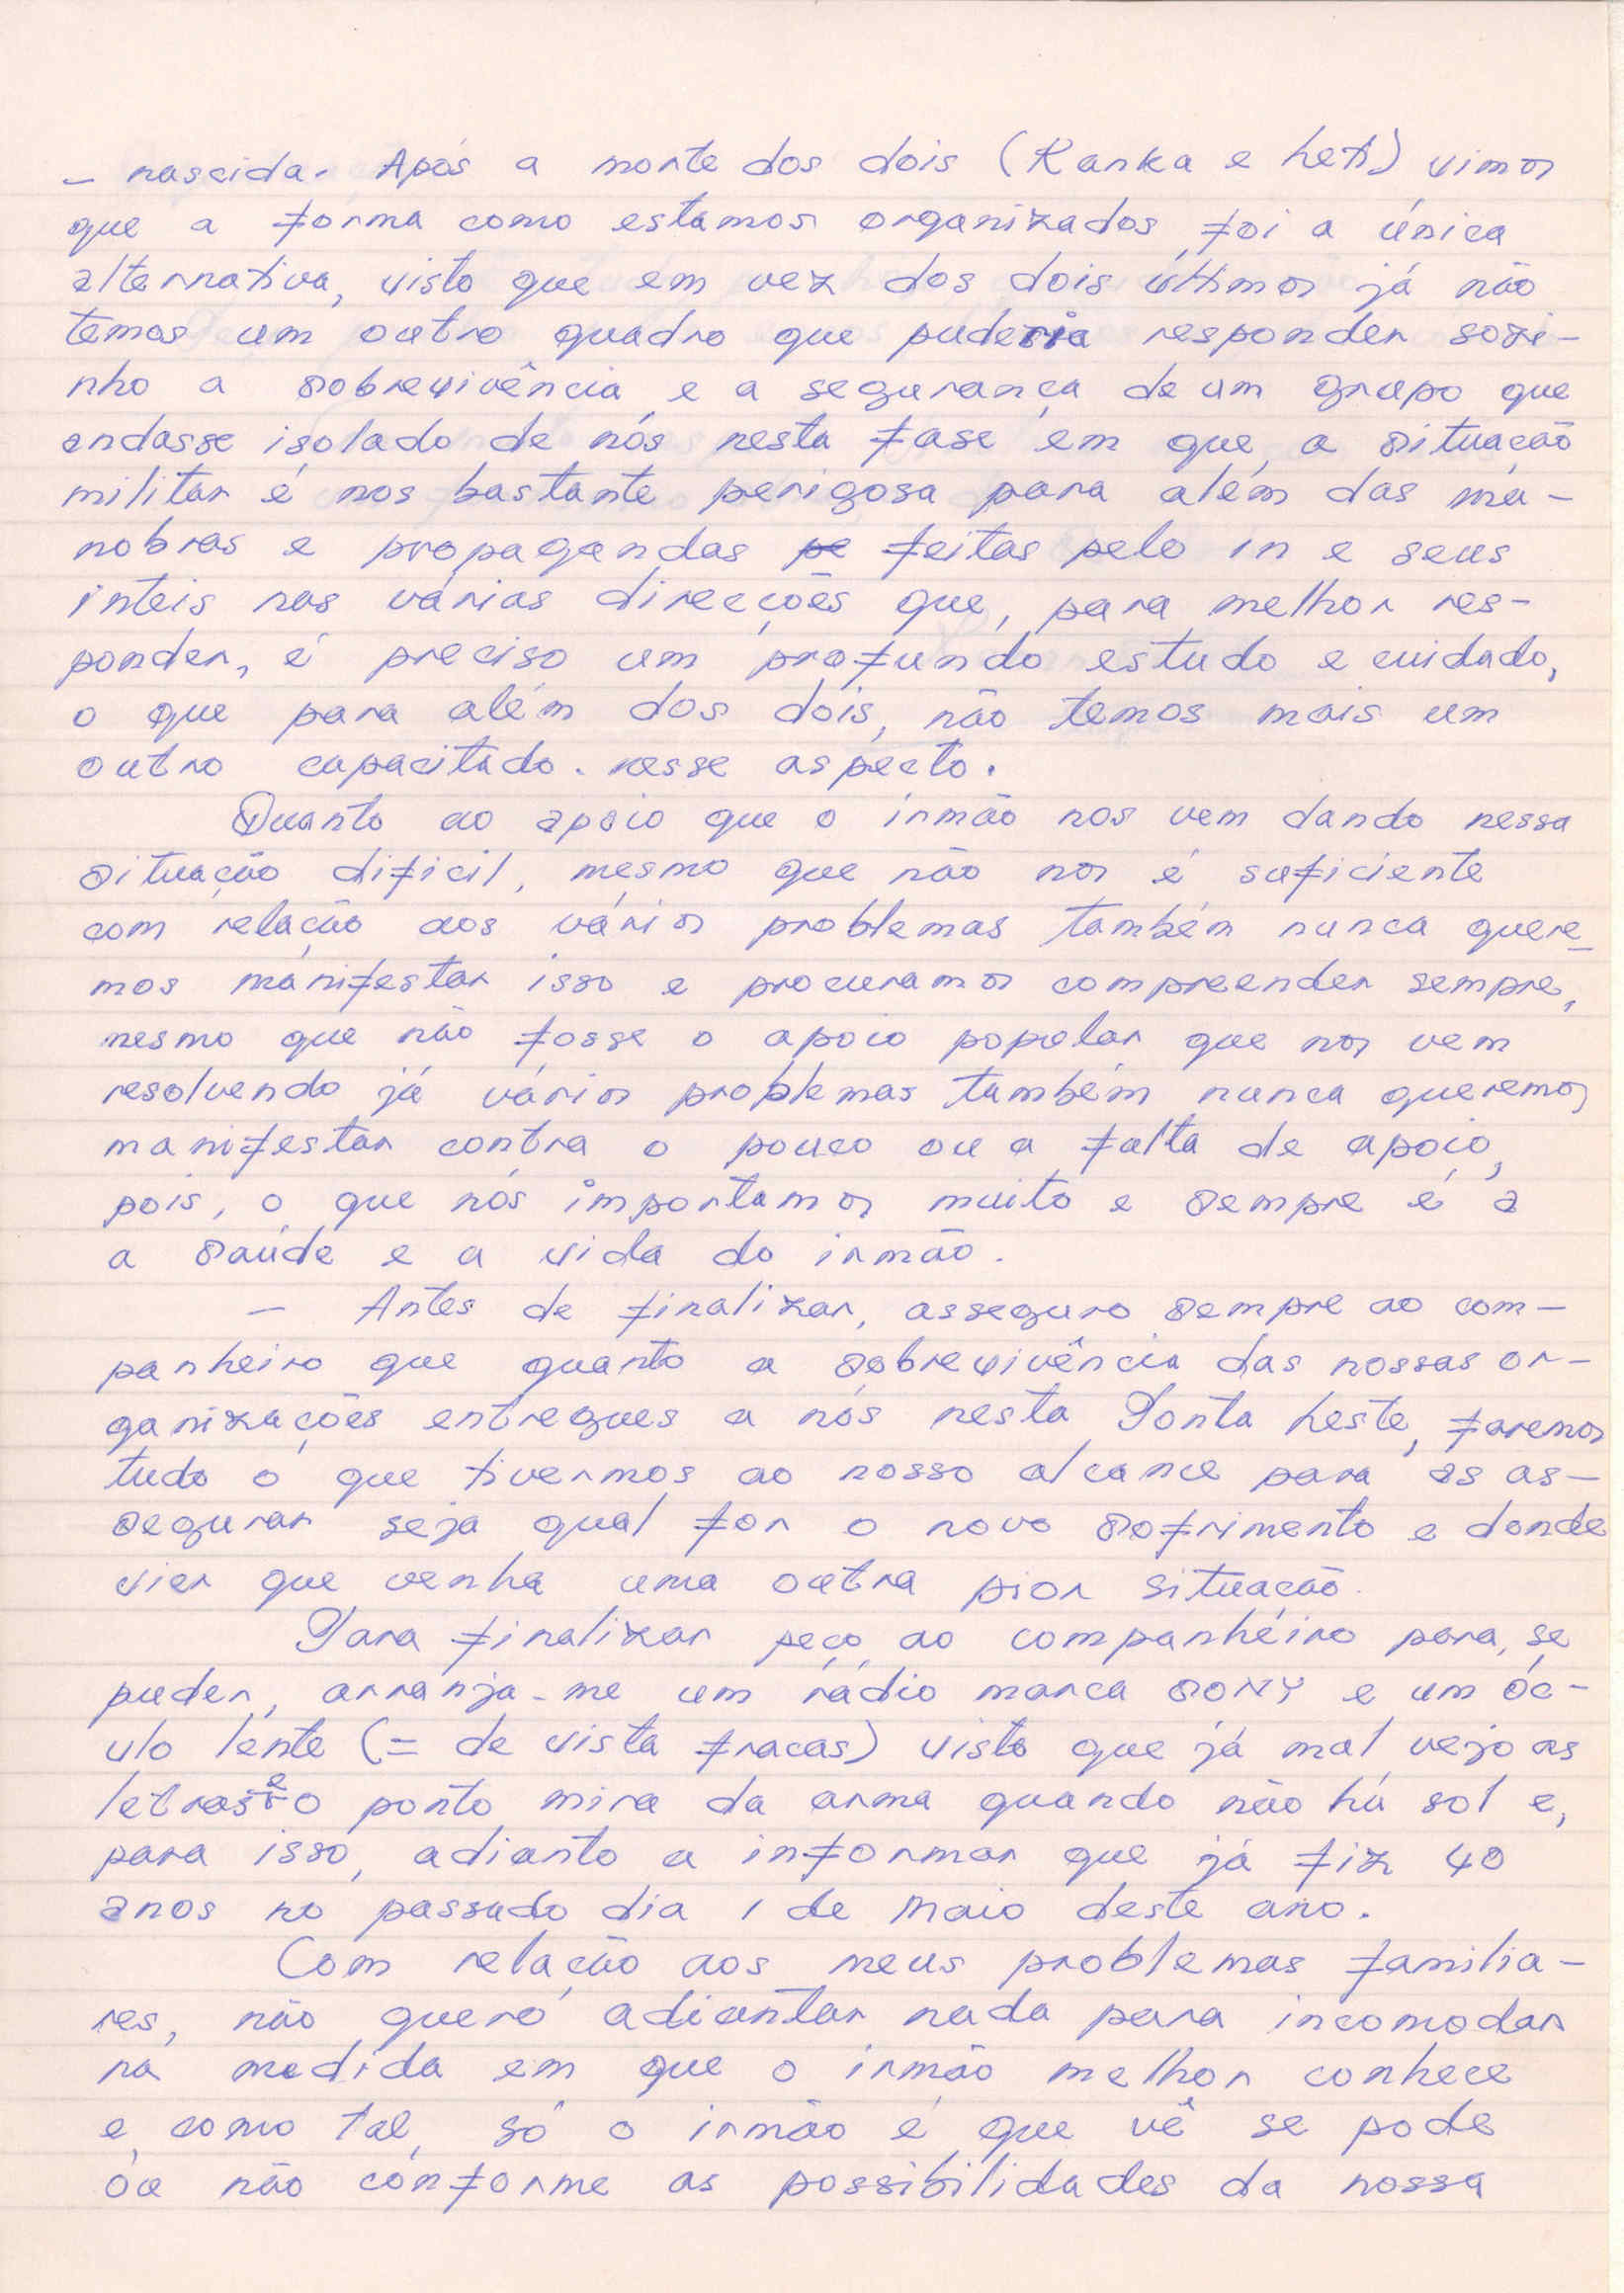 - nascida. Após a morte dos dois (Ranka e Leti) vimos
que a forma como estamos organizados foi a única
alternativa, visto que em vez dos dois últimos já não
temos um outro quadro que puderia responder sozi-
nho a sobrevivência e a segurança de um grupo que
andasse isolado de nós nesta fase em que, a situação
militar é nos bastante perigosa para além das ma-
nobras e propagandas pe feitas pelo in e seus
inteis nas várias direcções que, para melhor res-
ponder, é preciso um profundo estudo e cuidado,
o que para além dos dois, não temos mais um
outro capacitado. nesse aspecto.
Quanto ao apoio que o irmão nos vem dando nessa
situação dificil, mesmo que não nos é suficiente
com relação aos vários problemas também nunca quere-
mos manifestar isso e procuramos compreender sempre,
mesmo que não fosse o apoio popular que nos vem
resolvendo já vários problemas também nunca queremos
manifestar contra o pouco ou a falta de apoio,
pois, o que nós importamos muito e sempre é a
a saúde e a vida do irmão.
- Antes de finalizar, asseguro sempre ao com-
panheiro que quanto a sobrevivência das nossas or-
ganizações entregues a nós nesta Ponta Leste, faremos
tudo o que tivermos ao nosso alcance para as as-
segurar seja qual for o novo sofrimento e donde
vier que venha uma outra pior situação.
Para finalizar peço ao companheiro para, se
puder, arranja-me um rádio marca SONY e um óc-
ulo lente (= de vista fracas) visto que já mal vejo as
letras e o ponto mira da arma quando não há sol e,
para isso, adianto a informar que já fiz 40
anos no passado dia 1 de Maio deste ano.
Com relação aos meus problemas familia-
res, não quero adiantar nada para incomodar
na medida em que o irmão melhor conhece
e, como tal, só o irmão é que vê se pode
ou não conforme as possibilidades da nossa